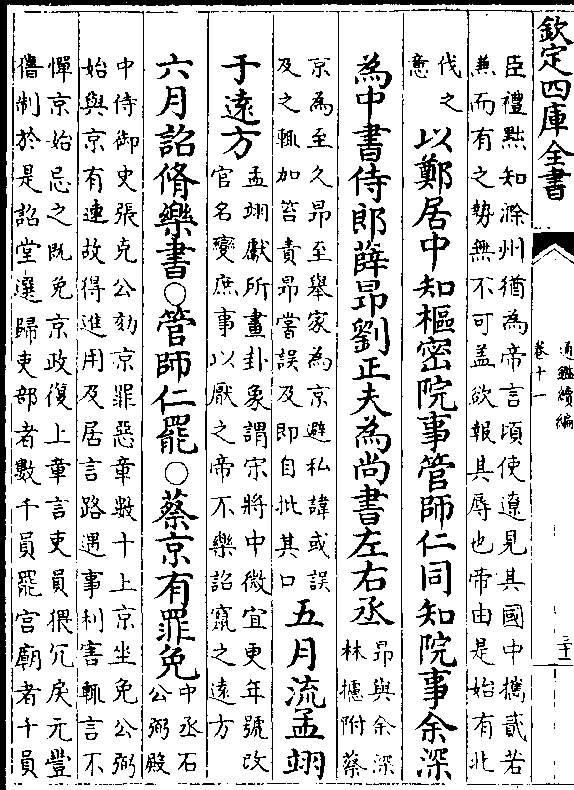 欽定四庫全書
通鑑續編
卷十一
臣禮黜知滁州猶為帝言頃使遼見其國中攜貳若
兼而有之勢無不可蓋欲報其辱也帝由是始有北
伐之
意
以鄭居中知樞密院事管師仁同知院事余深
為中書侍郎薛昂劉正夫為尚書左右丞
昂與余深
林攄附蔡
京為至久昂至舉家為京避私諱或誤
及之輒加笞責昂嘗誤及即自批其口
五月流孟翊
于遠方
孟翊獻所畫卦象謂宋將中微宜更年號改
官名變庶事以厭之帝不樂詔竄之遠方
六月詔脩樂書○管師仁罷○蔡京有罪免
中丞石
公弼殿
中侍御史張克公劾京罪惡章數十上京坐免公弼
始與京有連故得進用及居言路遇事利害輒言不
憚京始忌之既免京政復上章言吏員猥冗戾元豐
舊制於是詔堂選歸吏部者數千員罷宫廟者千員